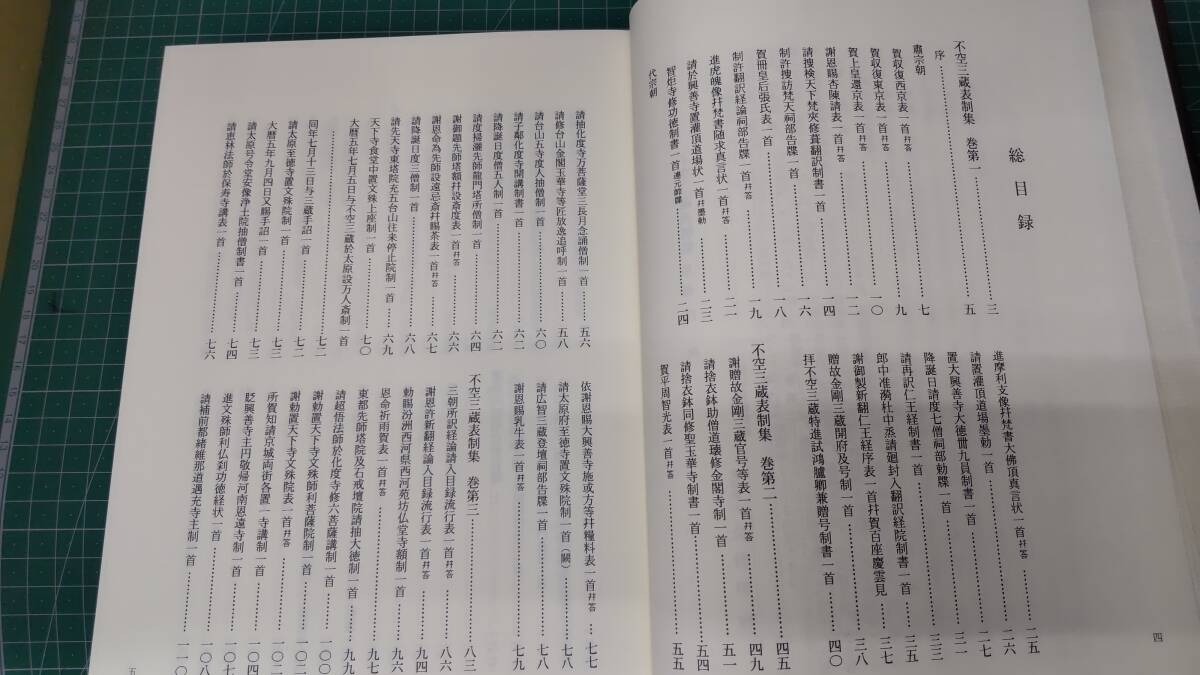 総目録
不空三蔵表制集 巻第一
序……三
肅宗朝……五
賀収復西京表一首并答……七
賀収復東京表一首并答……九
賀上皇還京表一首并答……一〇
謝恩賜杏陳請表一首并答……一二
請捜検天下梵夾修葺翻訳制書一首……一四
制許捜訪梵天祠部告牒一首……一六
賀冊皇后張氏表一首……一八
制許翻訳経論祠部告牒一首并答……一九
進虎魄像并梵書随求真言状一首并答……二一
請於興善寺置灌頂道場状一首并墨勅……二三
智炬寺修功徳制書一首……二四
代宗朝
進摩利支像并梵書大佛頂真言状一首并答……二五
請置灌頂道場墨勅一首……二六
置大興善寺大徳卌九員制書一首……二七
降誕日請度七僧祠部勅牒一首……三一
請再訳仁王経制書一首……三五
郎中准㵎杜中丞請廻封入翻訳経院制書一首……三七
謝御製新翻仁王経序表一首并賀百座慶雲見……三八
贈故金剛三蔵開府及号制一首
拝不空三蔵特進試鴻臚卿兼贈号制書一首……四〇
不空三蔵表制集 巻第二……四五
謝贈故金剛三蔵官号等表一首并答……四九
請捨衣鉢助僧道環修金閣寺制一首……五一
請捨衣鉢同修聖玉華寺制書一首……五四
賀平周智光表一首并答……五五
四
請抽化度寺万菩薩堂三長月念誦僧制一首……五六
請修台山金閣玉華寺等匠放逸追呼制一首……五八
請台山五寺度人抽僧制一首……六〇
請子鄰化度寺開講制書一首……六二
請降誕日度僧五人制一首……六二
請度掃灑先師龍門塔所僧制一首……六四
謝御題先師塔額并設斎度表一首并答……六六
謝恩命為先師設遠忌斎并賜茶表一首并答……六七
請降誕日度三僧制一首……六八
請先天寺東塔院充五台山往来停止院制一首……六九
天下寺食堂中置文殊上座制一首……七〇
大暦五年七月五日与不空三蔵於太原設万人斎制一首
……七二
同年七月十三日与三蔵手詔一首……七二
請太原至徳寺置文殊院制一首……七二
大暦五年九月四日又賜手詔一首……七三
請太原号令堂安像浄土院抽僧制書一首……七四
請恵林法師於保寿寺講表一首……七六
依謝恩賜大興善寺施或方等并糧料表一首并答……七七
請太原府至徳寺置文殊院制一首(闕)……七八
請広智三蔵登壇祠部告牒一首……七八
謝恩賜乳牛表一首并答……七九
不空三蔵表制集 巻第三……八三
三朝所訳経論請入目録流行表一首并答……八六
謝恩許新翻経論入目録流行表一首并答……九四
勅賜汾洲西河県西河苑坊仏堂寺額制一首……九六
恩命祈雨賀表一首并答……九七
東都先師塔院及石戒壇院請抽大徳制一首……九九
請超悟法師於化度寺修六菩薩講制一首……九九
謝勅置天下寺文殊師利菩薩院制一首……一〇〇
謝勅置天下寺文殊院表一首并答……一〇二
所賀知請京城両街各置一寺講制一首……一〇二
貶興善寺主円敬帰河南思遠寺制一首……一〇四
進文殊師利仏刹功徳経状一首……一〇七
請補前都維那道遇充寺主制一首……一〇八
……一一〇
五